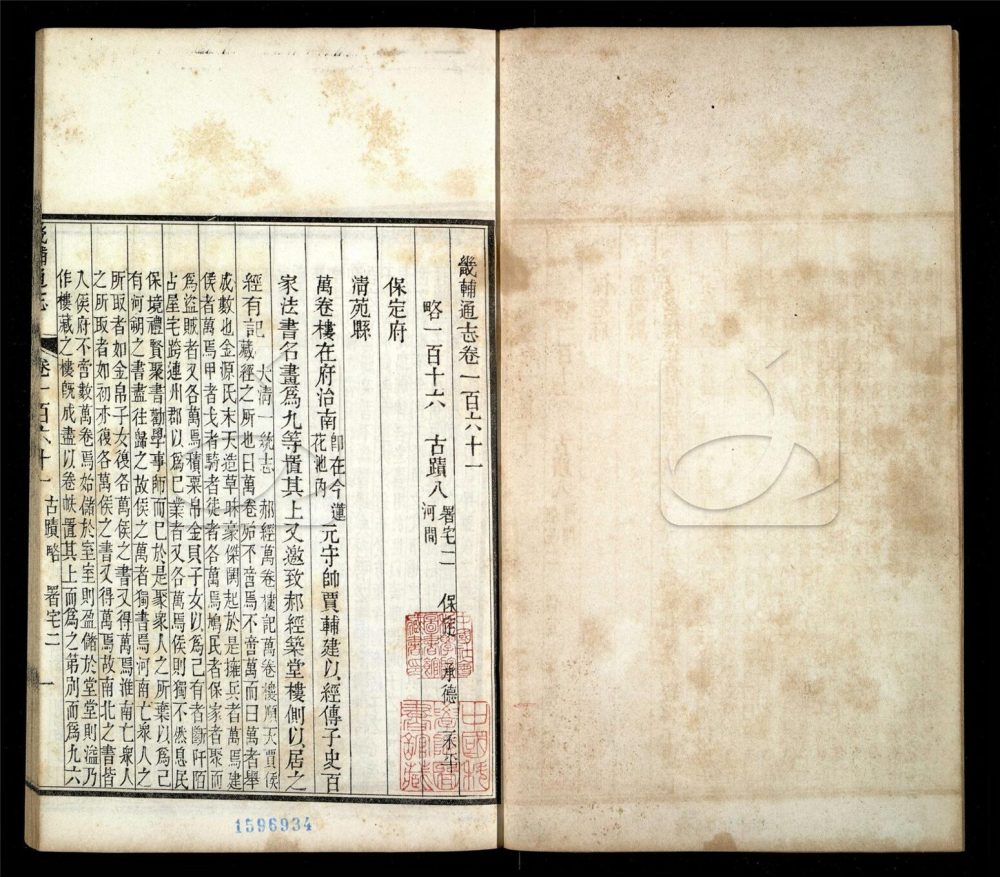 畿輔通志卷一百六十一
略一百十六　古蹟八　署宅二　保定　承德　永平　河間
保定府
清苑縣
萬卷樓在府治南即在今蓮花池內元守帥賈輔建以經傳子史百
家法書名畫爲九等置其上又邀致郝經築堂樓側以居之
經有記　大清一統志　郝經萬卷樓記萬卷樓順天賈侯
藏經之所也曰萬卷殆不啻焉不啻萬而曰萬者舉
成數也金源氏末天造草昧豪傑闢起於是擁兵者萬焉建
侯者萬焉甲者戈者騎者徒者各萬焉鳩民者保家者聚而
爲盜賊者又各萬焉積粟帛金貝子女以爲己有者斷阡陌
占屋宅跨連州郡以爲己業者又各萬焉侯則獨不然息民
保境禮賢聚書勸學事師而已於是聚衆人之所棄以爲己
有河朔之書盡往歸之故侯之萬者獨書焉河南亡衆人之
所取者如金帛子女復各萬侯之書又得萬焉淮南亡衆人
之所取者如初亦復各萬侯之書又得萬焉故南北之書皆
入侯府不啻數萬卷焉始儲於室室則盈儲於堂堂則溢乃
作樓藏之樓既成盡以卷帙置其上而爲之第別而爲九六
畿輔通志　卷一百六十一　古蹟略　署宅二　一
1596934